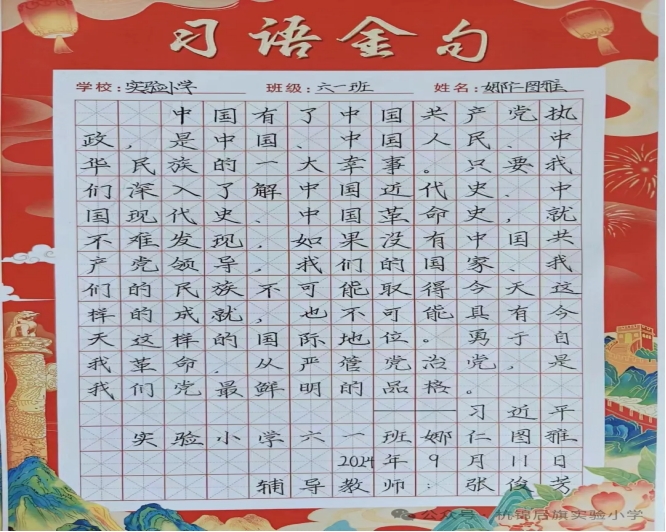 习语金句
学校：实验小学 班级：六一班 姓名：娜仁图雅
中国有了中国共产党执
政，是中国、中国人民、中
华民族的一大幸事。只要我
们深入了解中国近代史、中
国现代史、中国革命史，就
不难发现，如果没有中国共
产党领导，我们的国家、我
们的民族不可能取得今天这
样的成就，也不可能具有今
天这样的国际地位。勇于自
我革命，从严管党治党，是
我们党最鲜明的品格。
——习近平
实验小学六一班娜仁图雅
2024年9月11日
辅导教师：张俊芳
公众号·杭锦后旗实验小学